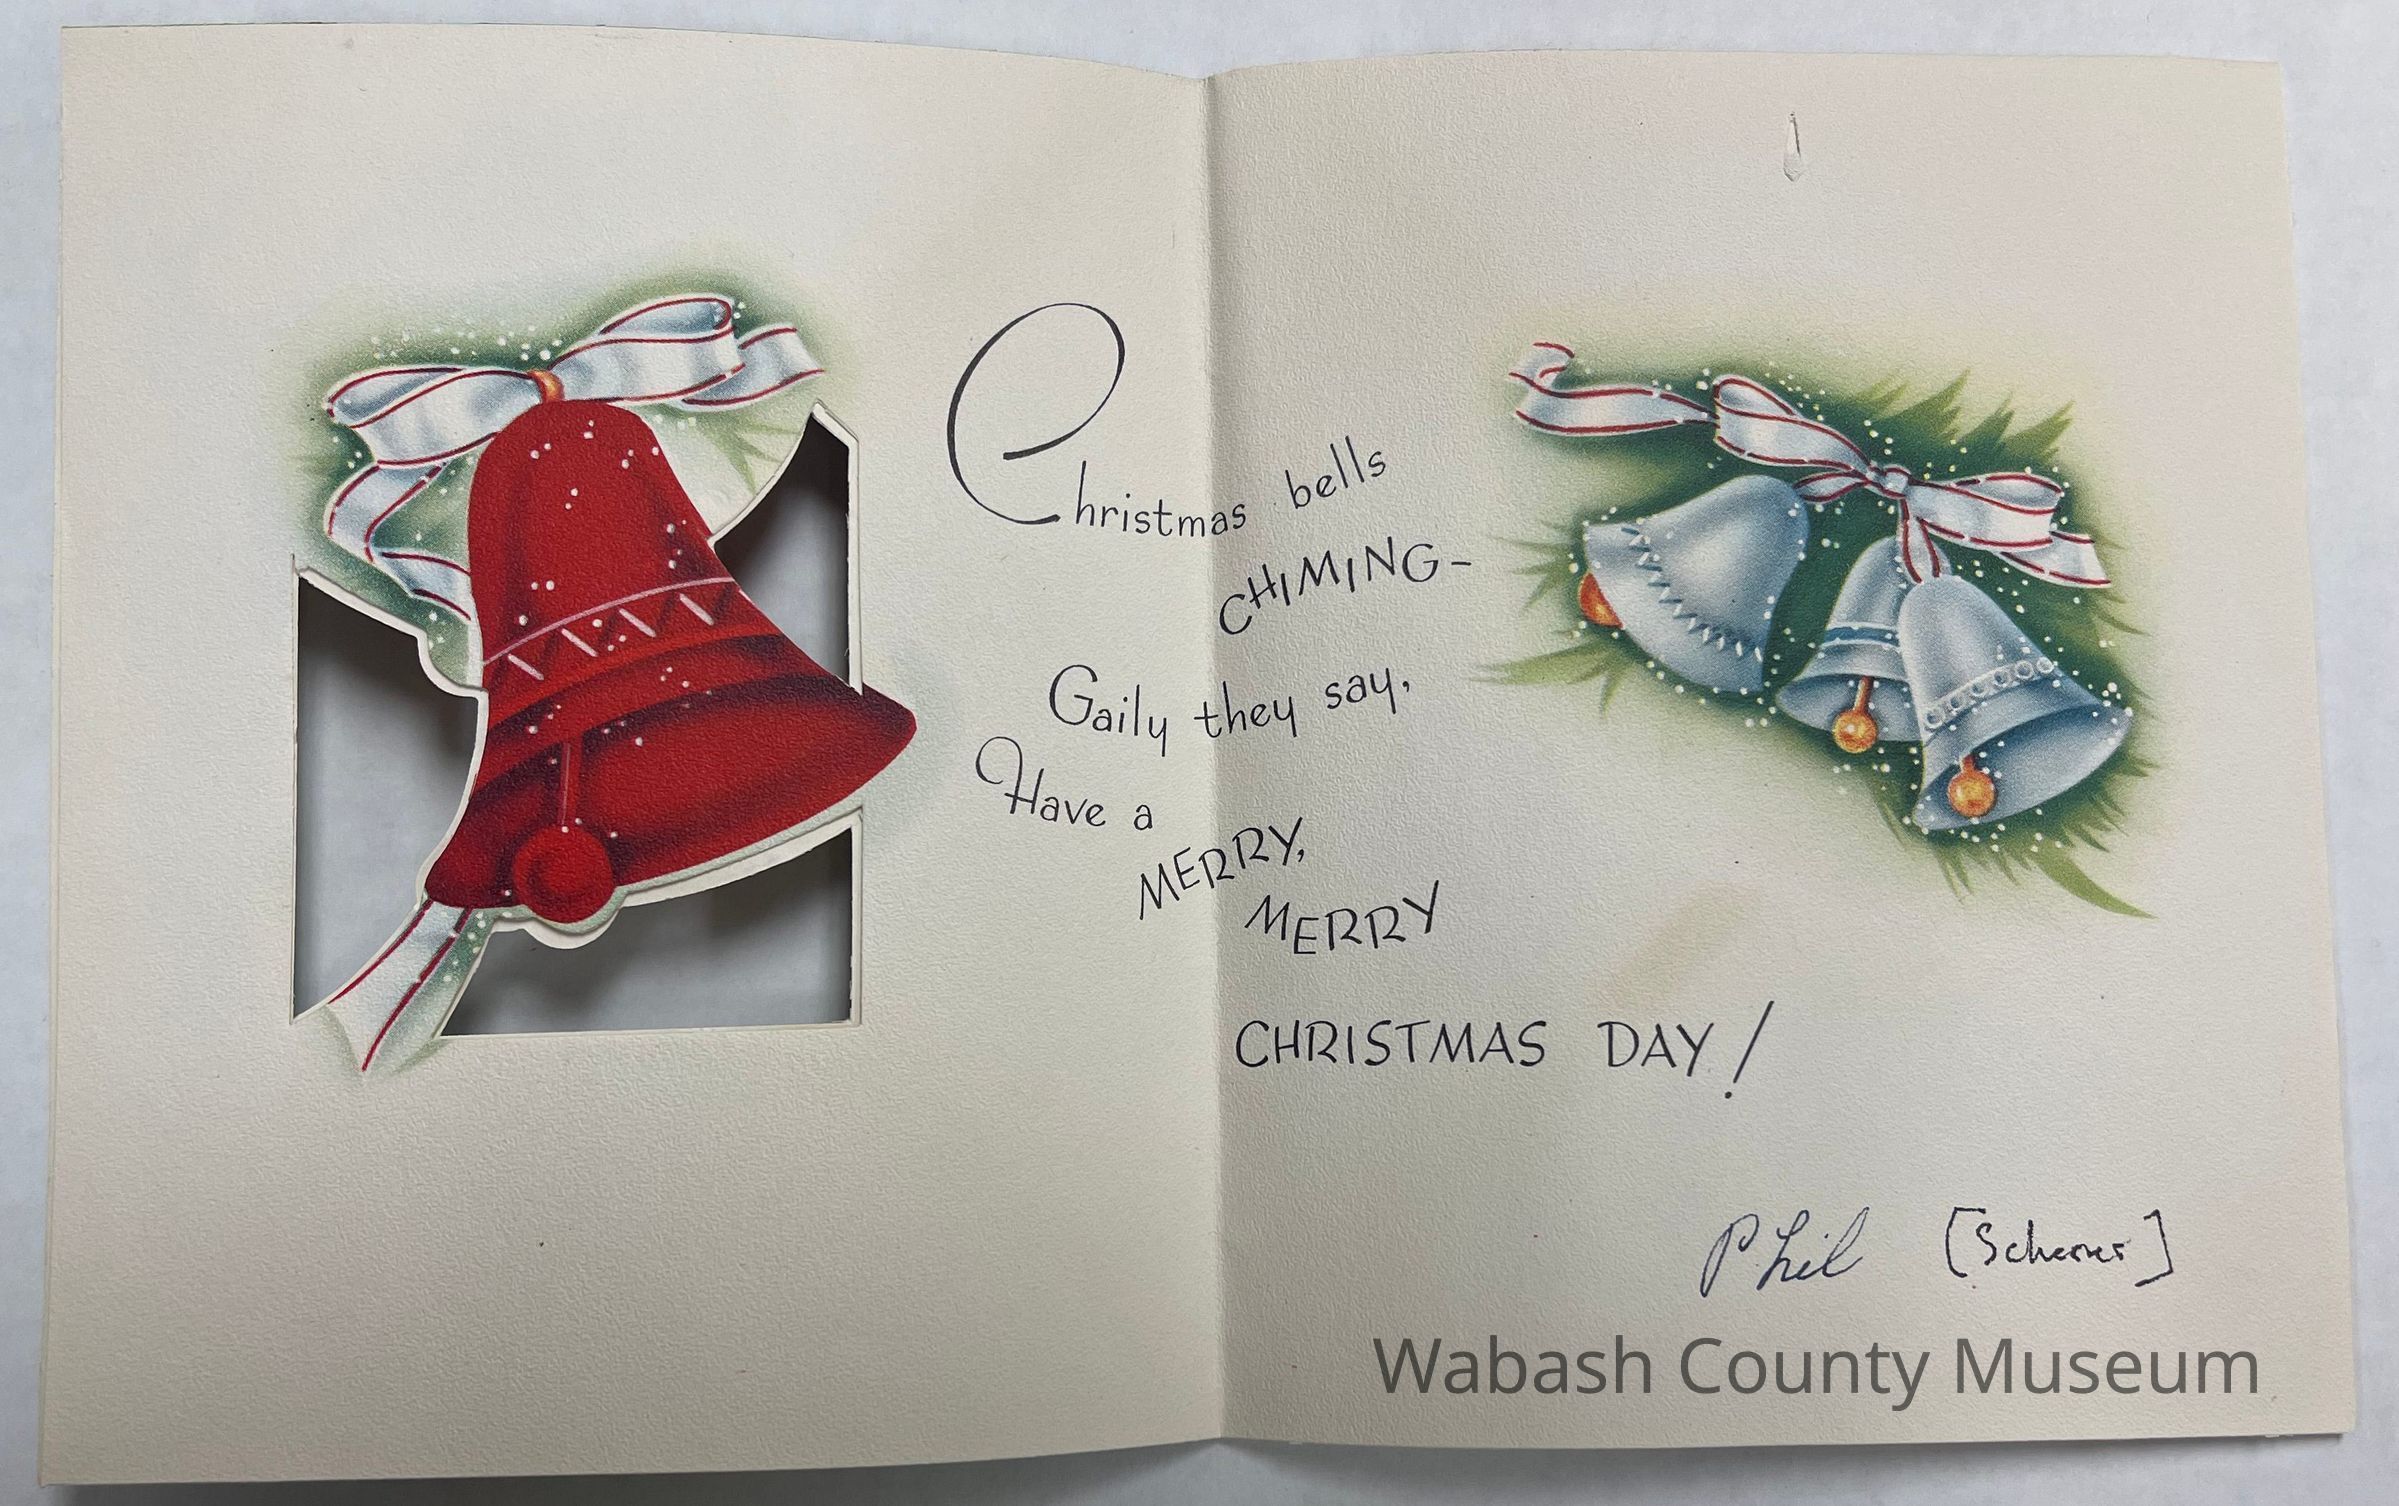 Christmas bells
CHIMING-
Gaily they say,
Have a
MERRY,
MERRY
CHRISTMAS DAY!
Phil [Scherer]
Wabash County Museum